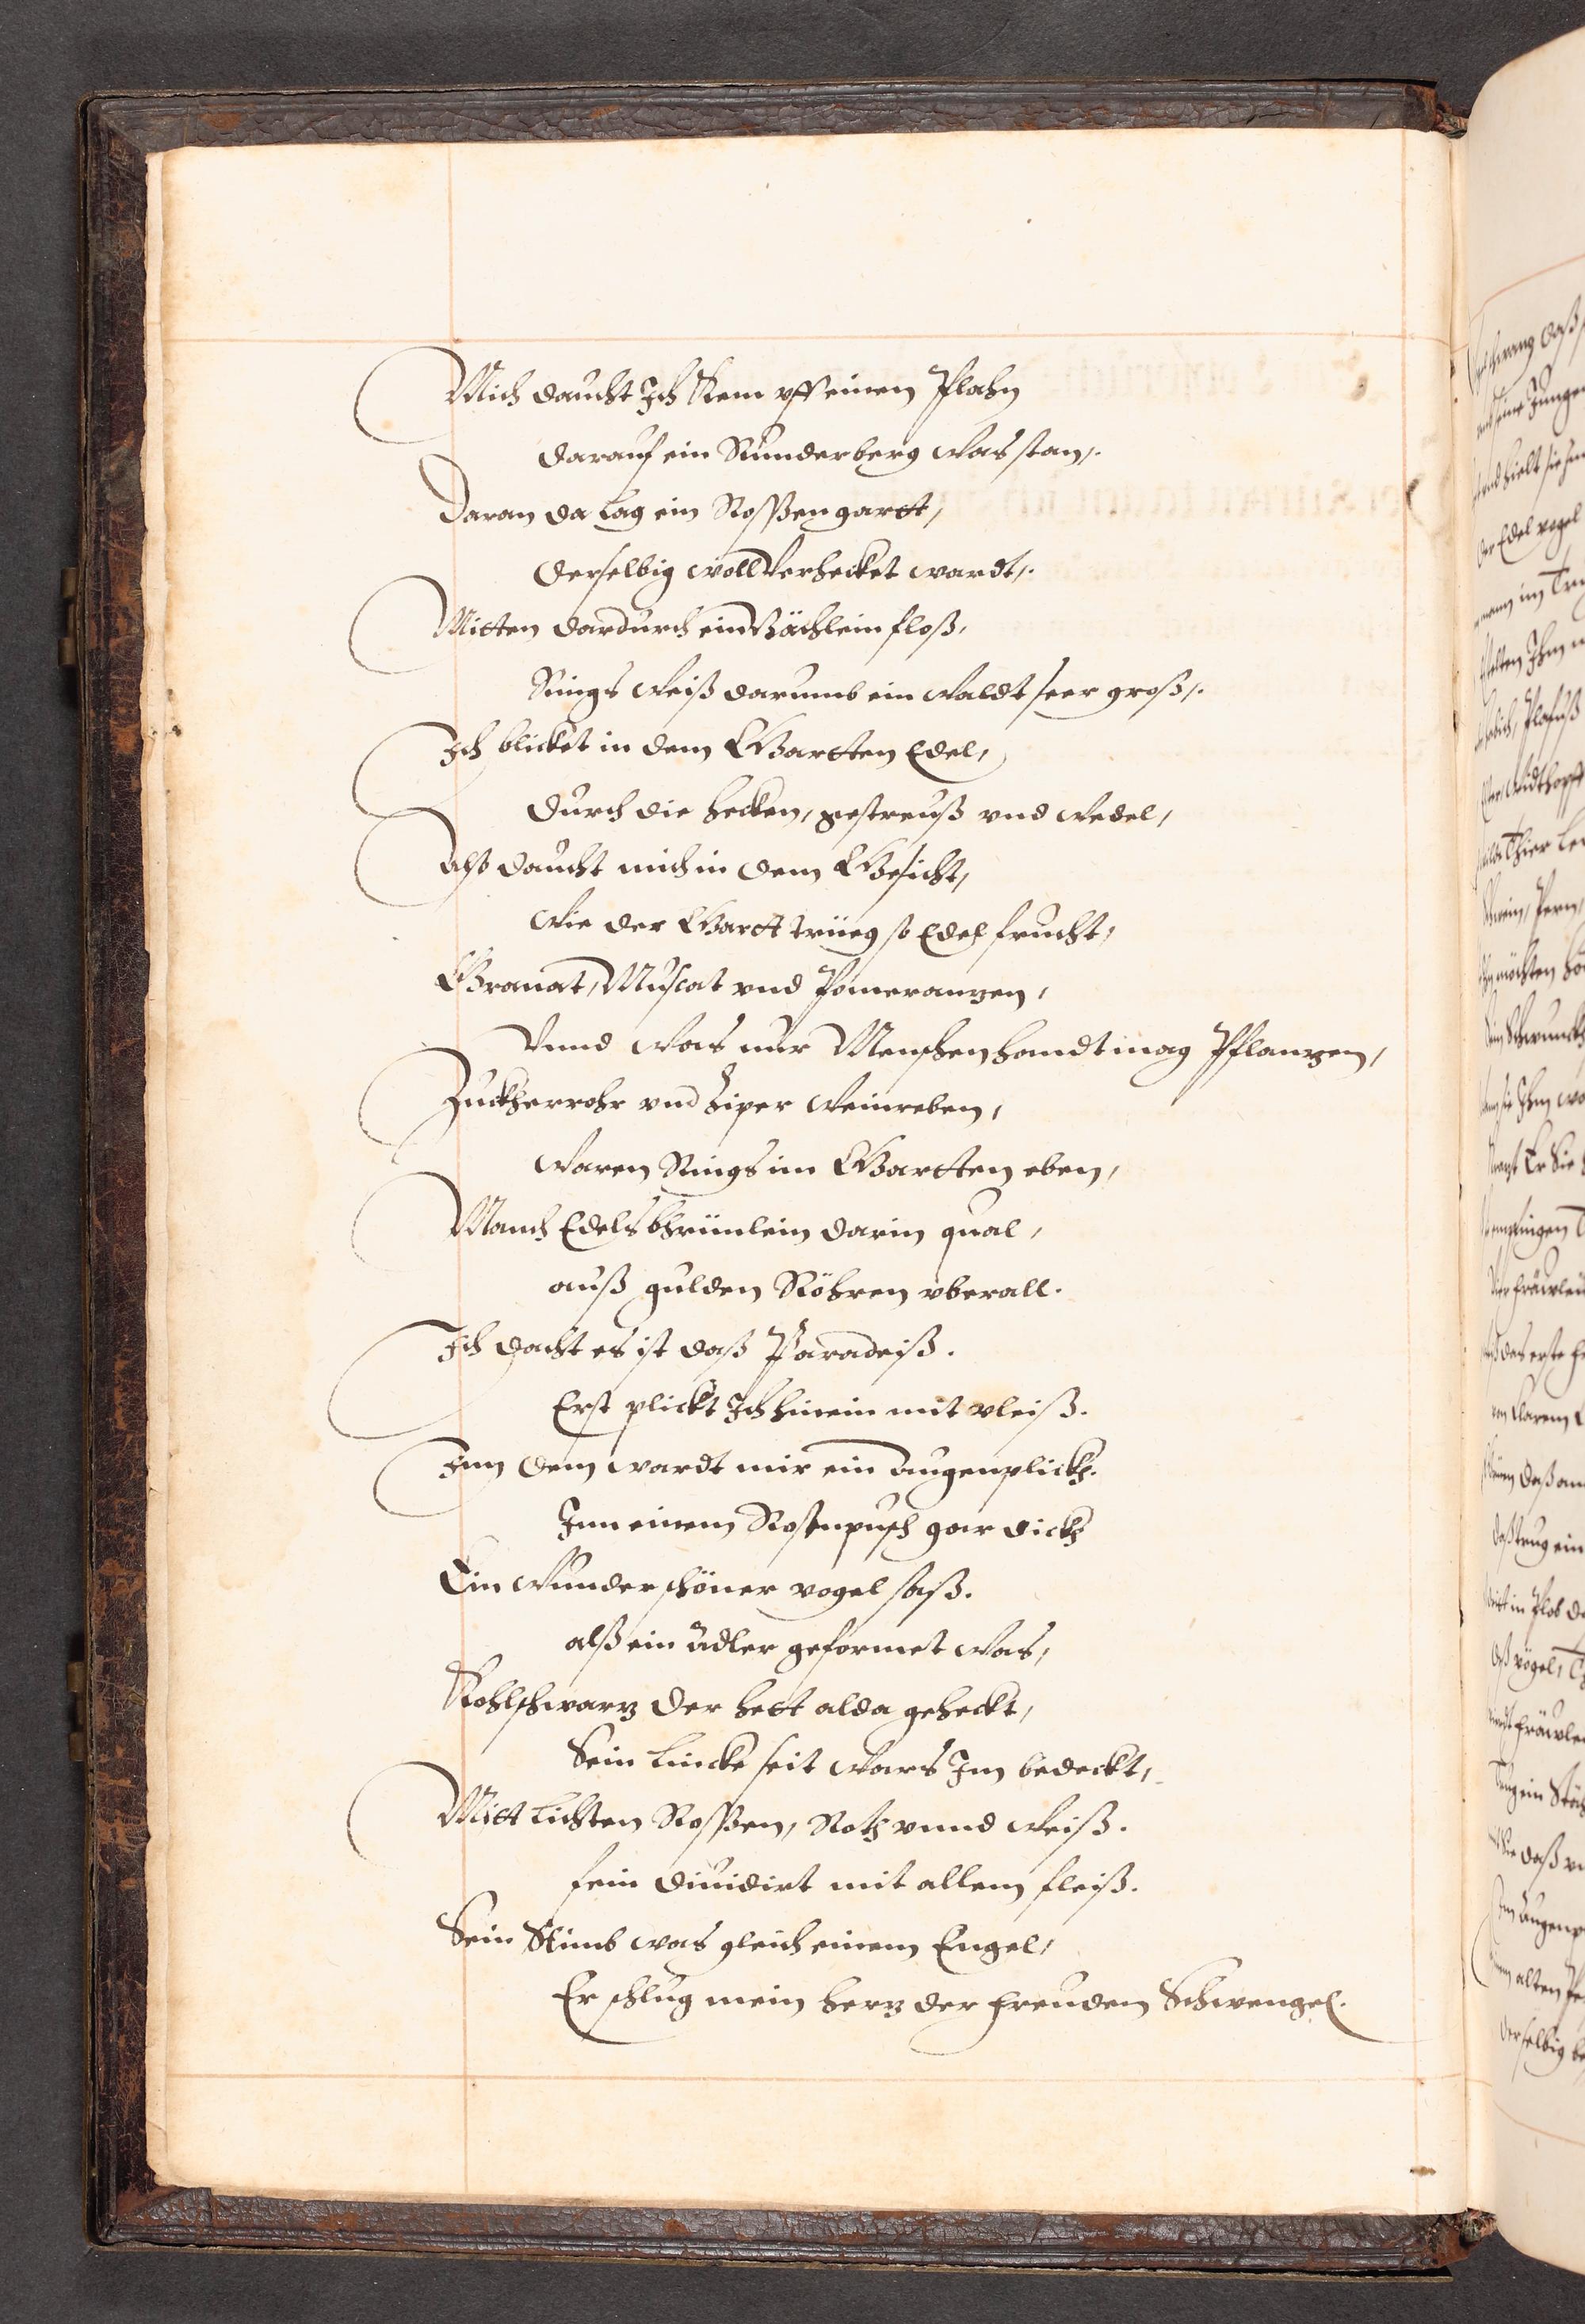 Mich daucht Ich Kem vff einen Plahn
darauf ein Runder berg was stan,.
Daran da lag ein Rossßengartt,
derselbig woll Verhecket wardt,.
Mitten dardurch ein Bächlein floß,
Rings weiß darumb ein waldt seer groß,.
Ich blicket in dem Gartten Edel,
durch die hecken, gestreuß vnd wedel,
Alß daucht mich in dem Gesicht,
wie der Gartt trüeg so Edel frucht,
Granat, Muscat vnd Pomeranzen,
Vnnd was nur Menschen handt mag Pflanzen,
Zuckherrohr vnd Ziper weinreben,
waren Rings im Gartten eben,
Manch Edels bhrünlein darin qual,
auß gulden Röhren vberall.
Ich dacht es ist daß Paradeiß.
Erst plickt Ich hinein mit vleiß.
Inn dem wardt mir ein Augenplickh.
Inn einem Rosenpusch gar dickh
Ein wunderschöner vogel saß.
alß ein Adler geformet was,
Kohlschwarz der hett alda geheckt,
Sein lincke seit wars Im bedeckt,
Mitt lichten Rossßen, Roth vnnd weiß.
fein diuidirt mit allem fleiß.
Sein Stimb was gleich einem Engel,
Er schlug mein herz der freuden Schwengel.